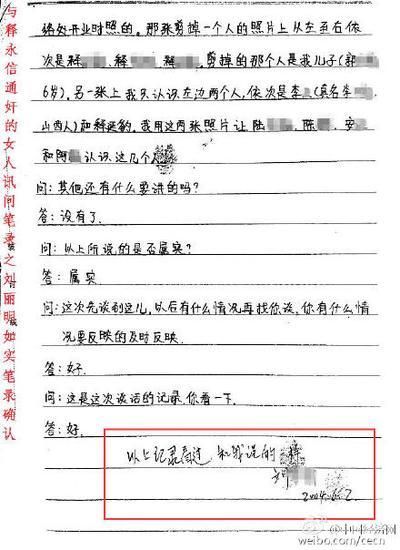 络处开业时照的。那张剪掉一个人的照片上从左至右依
次是释 、释 、释 , 剪掉的那个人是我儿子(郭
6岁)。另一张上我只认识左边两个人,依次是李 (真名李
山西人)和释延豹。我用这两张照片让陆 、陈 、安
和阿 认识这几个
问:其他还有什么要讲的吗?
答:没有了.
问:以上所说的是否属实?
答:属实
问:这次先谈到这儿,以后有什么情况再找你谈,你有什么情
况要反映的及时反映.
答:好.
问:这是这次谈话的记录.你看一下.
答:好.
以上记录看过 和我说的一样
刘
2004.6.2
与释永信通奸的女人讯问笔录之刘丽明如实笔录确认
@中国经济网
weibo.com/cecn